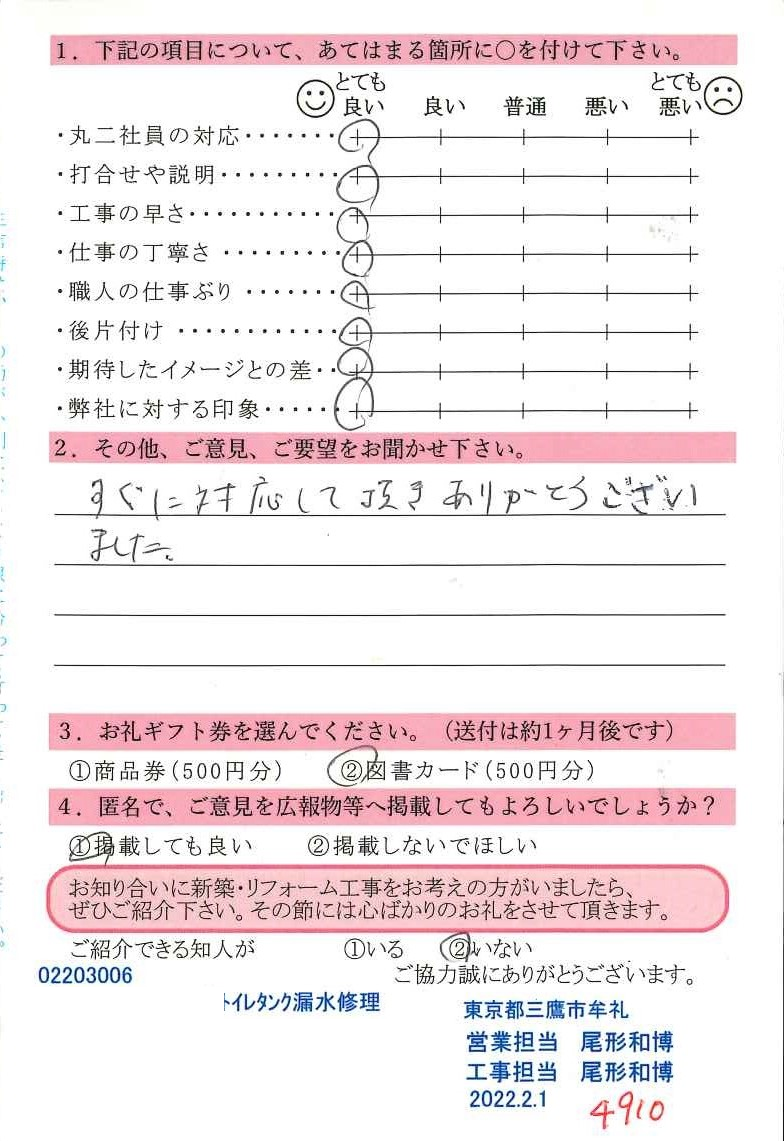 1．下記の項目について、あてはまる箇所に○を付けて下さい。
とても良い　良い　普通　悪い　とても悪い
・丸二社員の対応・・・・・・・
・打合せや説明・・・・・・・・・
・工事の早さ・・・・・・・・・・・
・仕事の丁寧さ・・・・・・・・・
・職人の仕事ぶり・・・・・・・
・後片付け・・・・・・・・・・・・
・期待したイメージとの差・・
・弊社に対する印象・・・・・・
2．その他、ご意見、ご要望をお聞かせ下さい。
すぐに対応して頂きありがとうござい
ました。
3．お礼ギフト券を選んでください。（送付は約1ヶ月後です）
①商品券（500円分）　②図書カード（500円分）
4．匿名で、ご意見を広報物等へ掲載してもよろしいでしょうか？
①掲載しても良い　②掲載しないでほしい
お知り合いに新築・リフォーム工事をお考えの方がいましたら、
ぜひご紹介下さい。その節には心ばかりのお礼をさせて頂きます。
ご紹介できる知人が　①いる　②いない
ご協力誠にありがとうございます。
02203006
トイレタンク漏水修理
東京都三鷹市牟礼
営業担当　尾形和博
工事担当　尾形和博
2022.2.1
4910